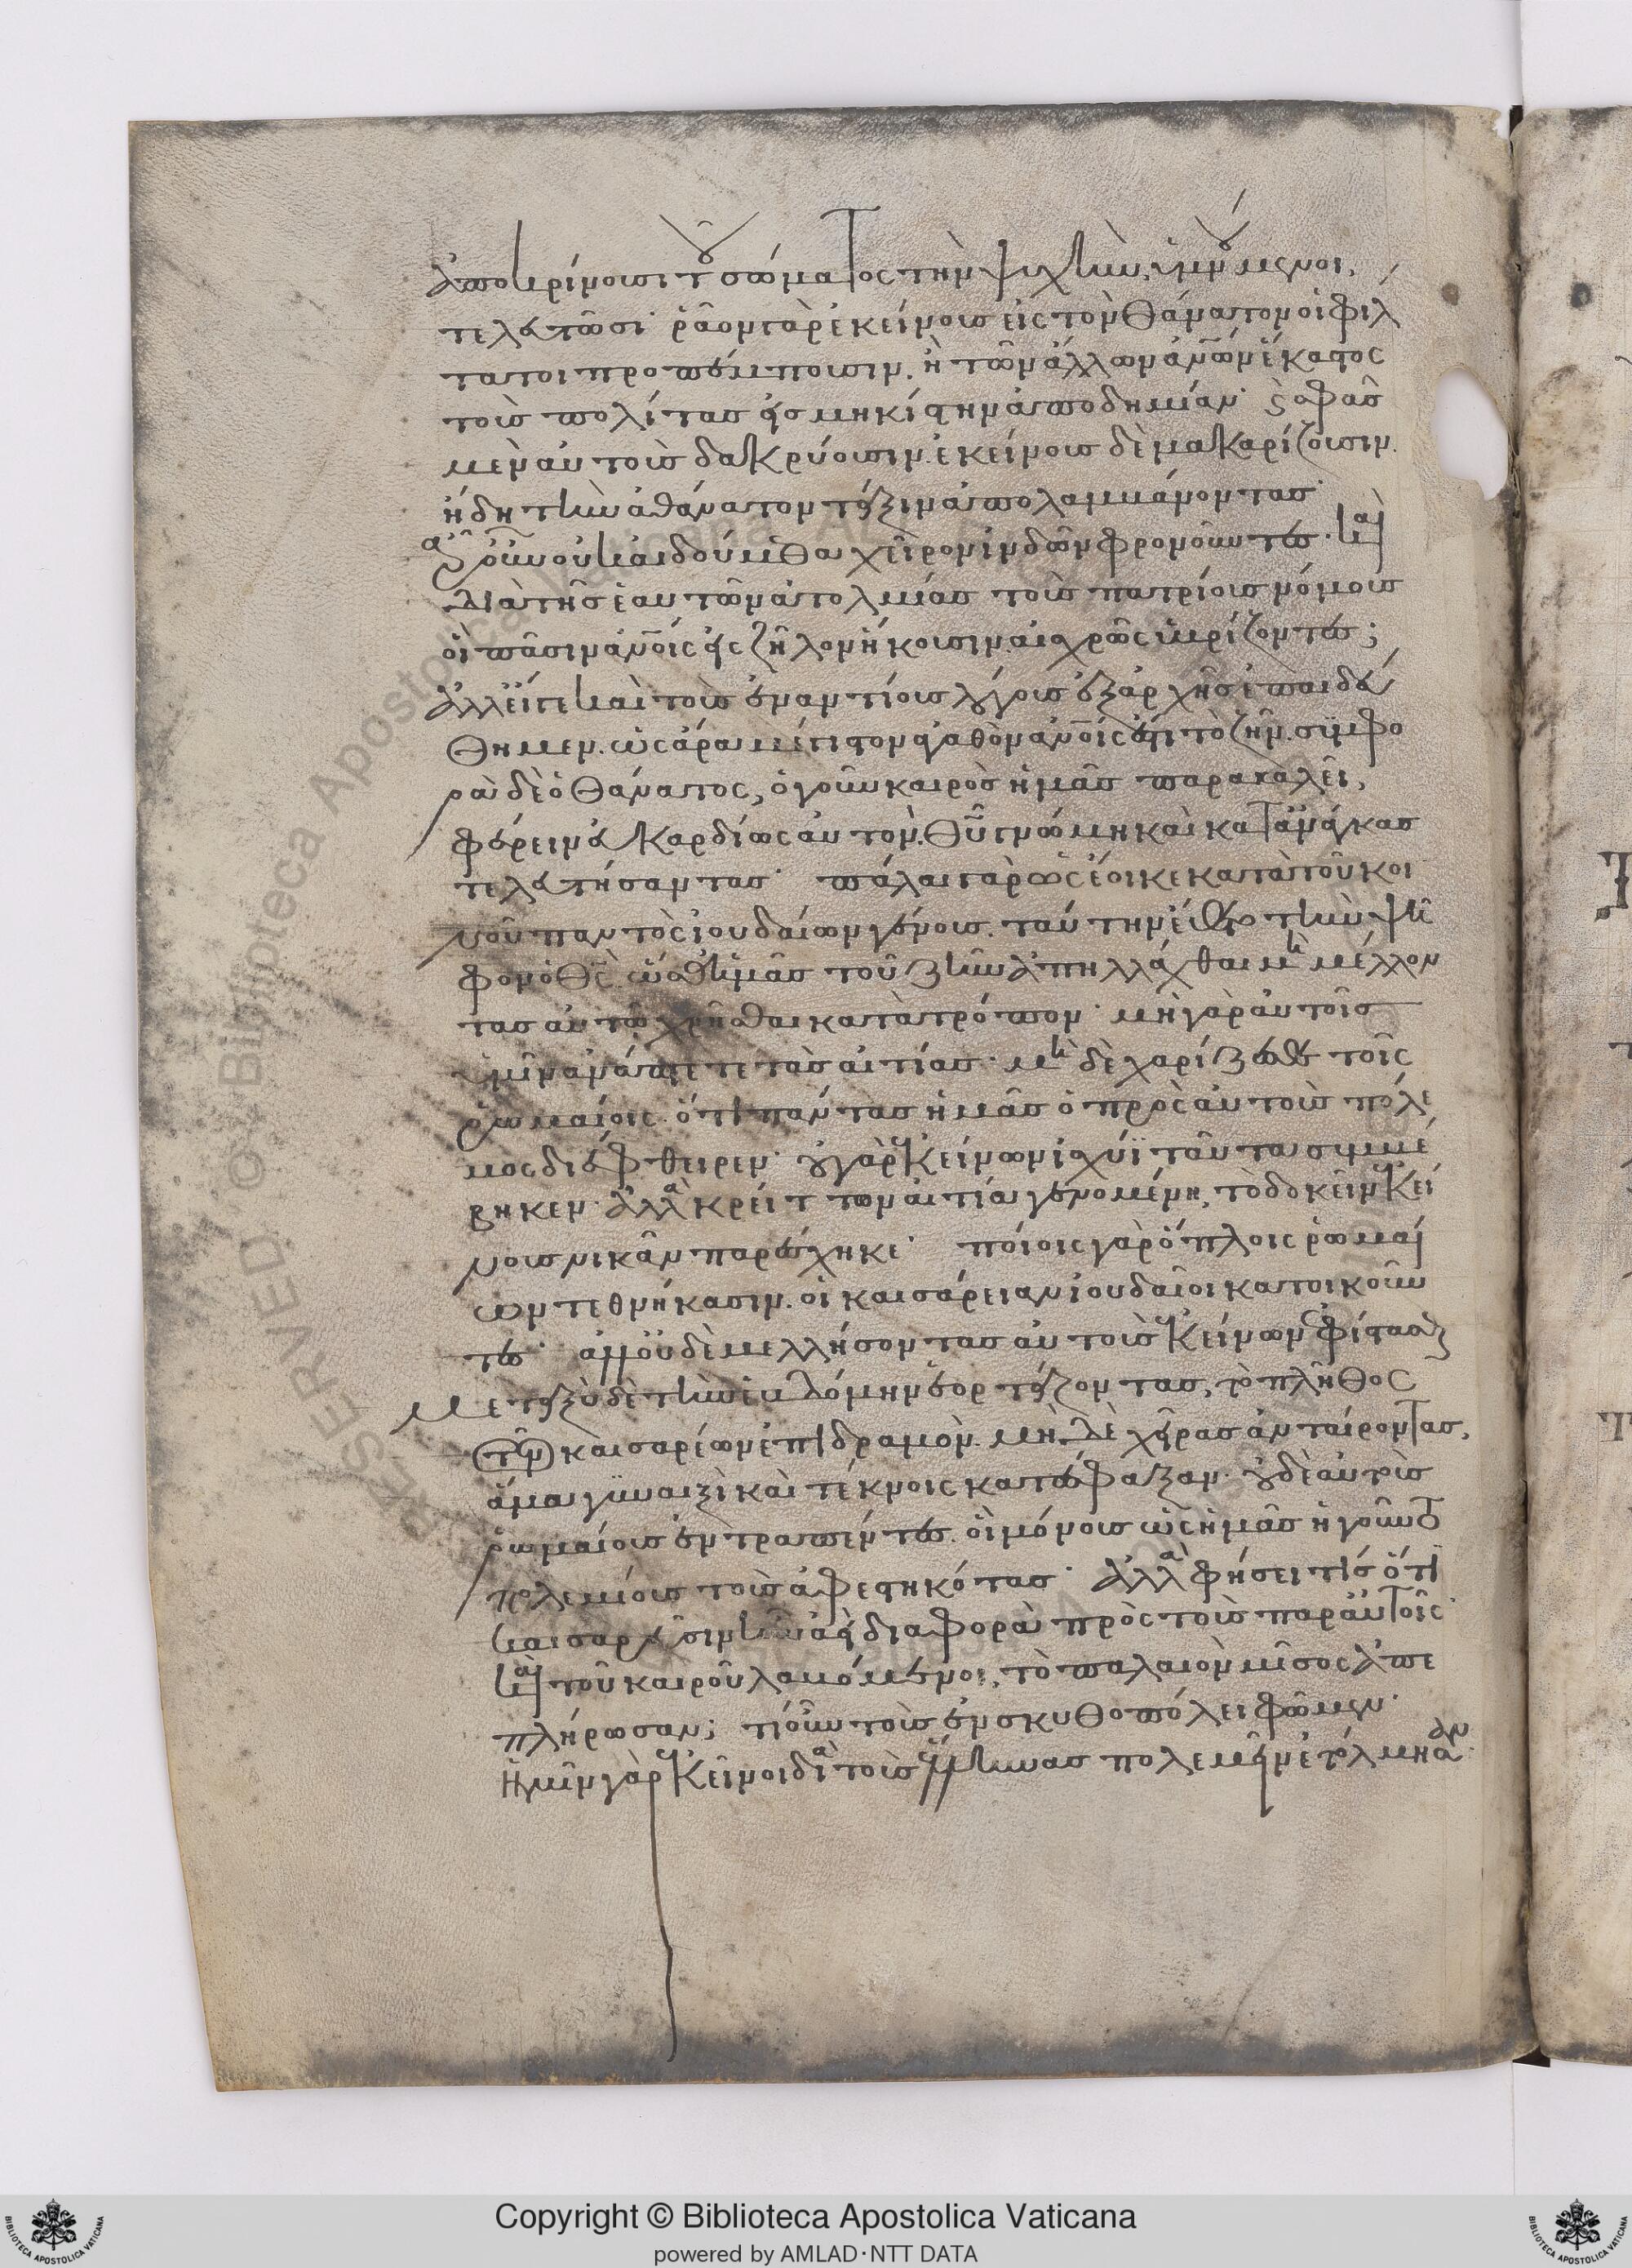 ἀποκρίνουσι τοῦ σώματος τὴν ψυχὴν, ὑμνούμενοι,
τελευτῶσι· ῥᾶον γὰρ ἐκείνους εἰς τὸν θάνατον οἱ φίλ
τατοι προπέμπουσιν. ἢ τῶν ἄλλων ἀνων ἕκαστος
τοὺς πολίτας εἰς μηκίστην ἀποδημίαν· καὶ σφᾶς
μὲν αὐτοὺς δακρύουσιν. ἐκείνους δὲ μακαρίζουσιν.
ἤδη τὴν ἀθάνατον τάξιν ἀπολαμβάνοντας·
ἆρ' οὖν οὐκ αἰδούμεθα χεῖρον ἰνδῶν φρονοῦντες· καὶ
διὰ τῆς ἑαυτῶν ἀτολμίας τοὺς πατρίους νόμους
οἳ πᾶσιν ἀνοις εἰς ζῆλον ἥκουσιν. αἰσχρῶς ὑβρίζοντες;
ἀλλ' εἴγε καὶ τοὺς ἐναντίους λόγους ἐξ ἀρχῆς ἐπαιδεύ
θημεν. ὡς ἄρα μέγιστον ἀγαθὸν ἀνοις ἐστὶ τὸ ζῆν. συμφο
ρὰ δὲ ὁ θάνατος, ὁ γοῦν καιρὸς ἡμᾶς παρακαλεῖ,
φέρειν εὐκαρδίως αὐτὸν. θῦ γνώμη καὶ κατ' ἀνάγκας
τελευτήσαντας· πάλαι γὰρ ὡς ἔοικε κατὰ τοῦ κοι
νοῦ παντὸς ἰουδαίων γένους. ταύτην ἔθετο τὴν ψῆ
φον ὁ θς. ὥσθ' ἡμᾶς τοῦ ζῆν ἀπηλλάχθαι μὴ μέλλον
τας αὐτῷ χρῆσθαι κατὰ τρόπον· μὴ γὰρ αὐτοῖς
ὑμῖν ἀνάπτετε τὰς αἰτίας· μὴ δὲ χαρίζεσθε τοῖς
ῥωμαίοις. ὅτι πάντας ἡμᾶς ὁ πρὸς αὐτοὺς πόλε
μος διέφθειρεν· οὐ γὰρ ἐκείνων ἰσχύϊ ταῦτα συμβέ
βηκεν· ἀλλὰ κρείττων αἰτία γενομένη, τὸ δοκεῖν ἐκεί
νους νικᾶν παρέσχηκε· ποίοις γὰρ ὅπλοις ῥωμαί
ων τεθνήκασιν. οἱ καισάρειαν ἰουδαῖοι κατοικοῦν
τες· ἀλλ' οὐδὲ μελλήσοντας αὐτοὺς ἐκείνων ἀφίστασθαι
μεταξὺ δὲ τὴν ἑβδόμην ἑορτάζοντας, τὸ πλῆθος
τῶν καισαρέων ἐπιδραμὸν. μὴ δὲ χεῖρας ἀνταίροντας,
ἅμα γυναιξὶ καὶ τέκνοις κατέσφαξαν. οὐδὲ αὐτοὺς
ῥωμαίους ἐντραπέντες. οἳ μόνους ὡς ἡμᾶς ἡγοῦντο
πολεμίους τοὺς ἀφεστηκότας· ἀλλὰ φήσει τίς ὅτι
καισαρεῦσιν ἦν ἀεὶ διαφορὰ πρὸς τοὺς παρ' αὐτοῖς·
καὶ τοῦ καιροῦ λαβόμενοι, τὸ παλαιὸν μῖσος ἀπε
πλήρωσαν; τί οὖν τοὺς ἐν σκυθοπόλει φῶμεν·
ἡμῖν γὰρ ἐκεῖνοι διὰ τοὺς ἕλληνας πολεμεῖν ἐτόλμησαν·
Copyright © Biblioteca Apostolica Vaticana
powered by AMLAD·NTT DATA